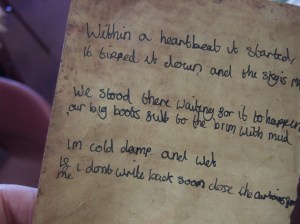 Within a heartbeat it started,
it tipped it down and the
We stood there waiting for it to happen
our big boots full to the brim with mud
Im cold damp and wet
If i dont write back soon close the curtains for
me